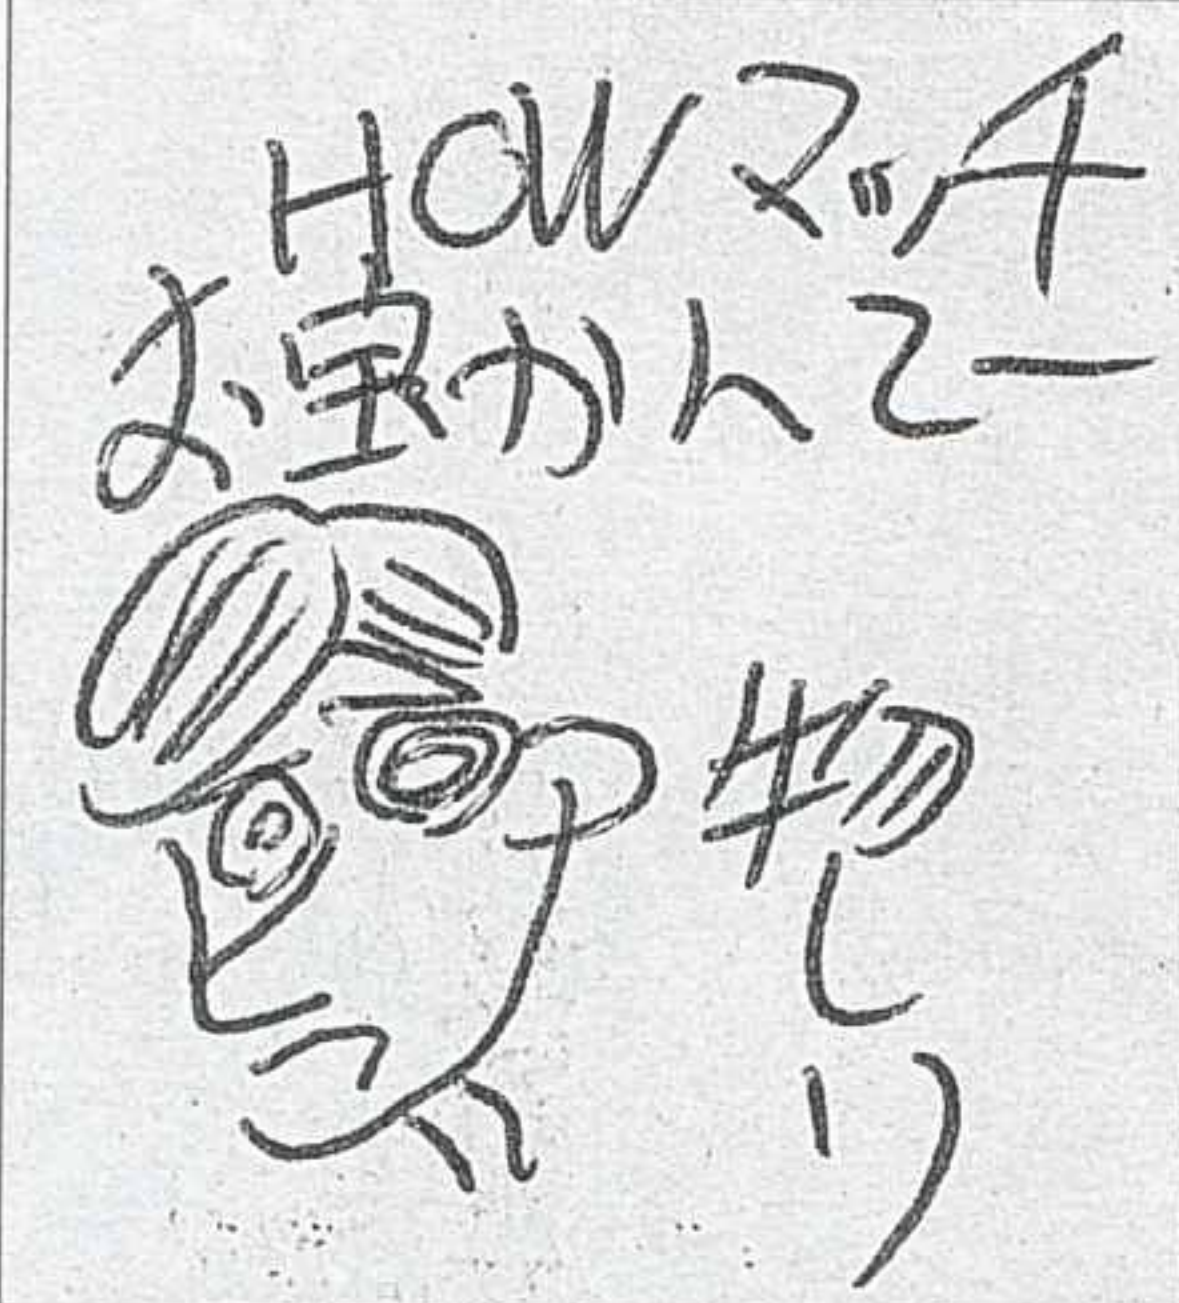 HOWマッチ
お宝かんてー
物しり